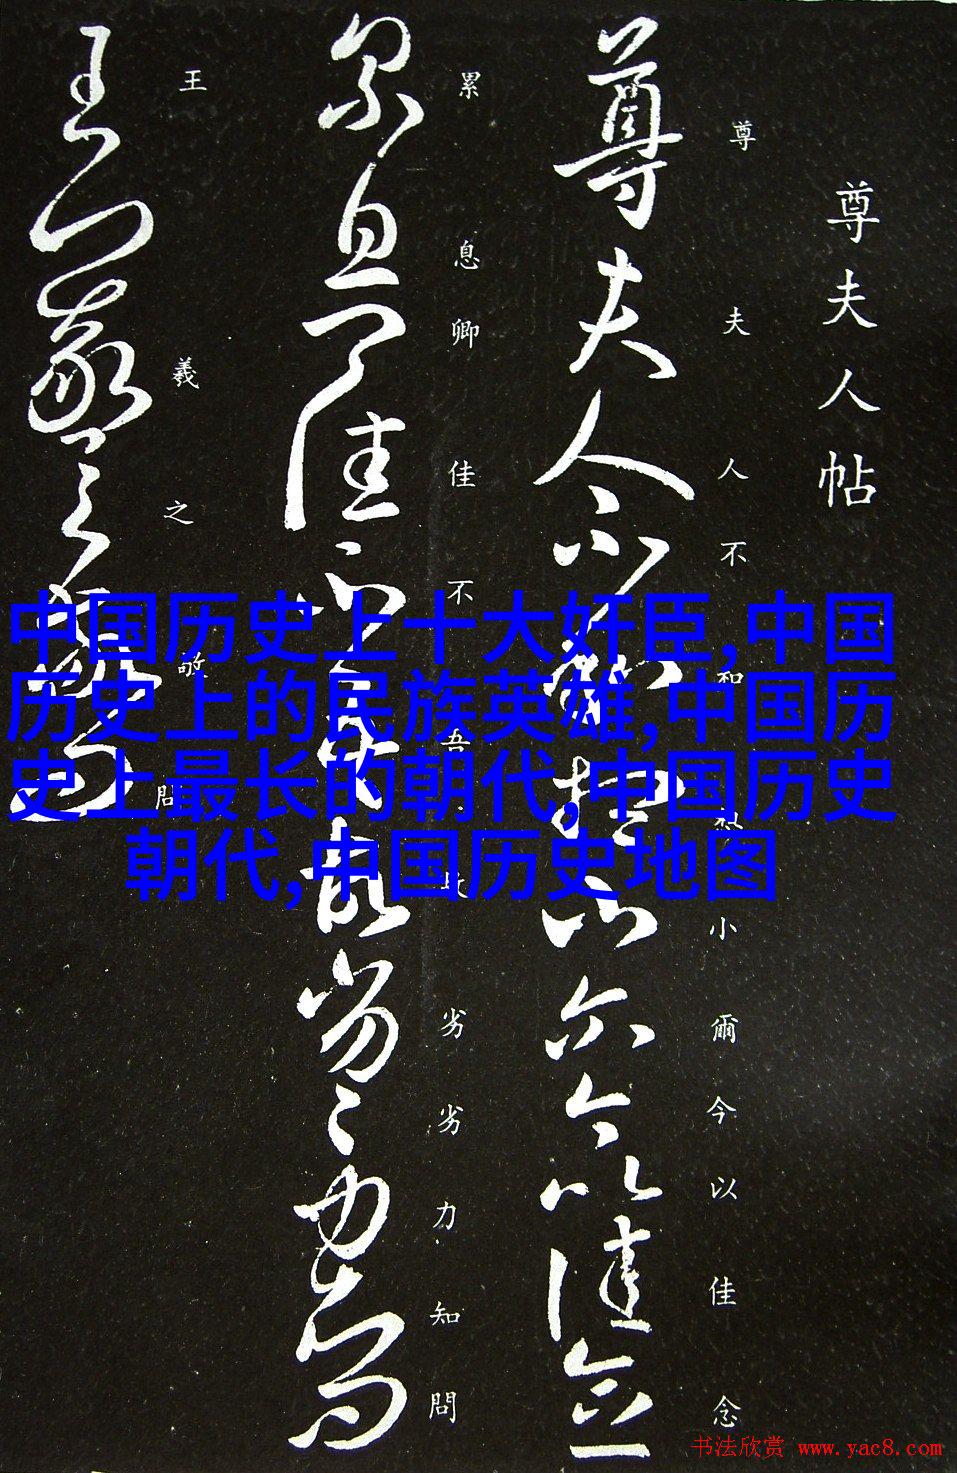 尊夫人帖
尊夫人不和
小爾今以佳念
累息卿佳不吾
劣劣力知問
王羲之敬問
中国历史上十大奸臣,中国
历史上的民族英雄,中国历
史上最长的朝代,中国历史
朝代,中国历史地图
书法欣赏 www.yac8.com